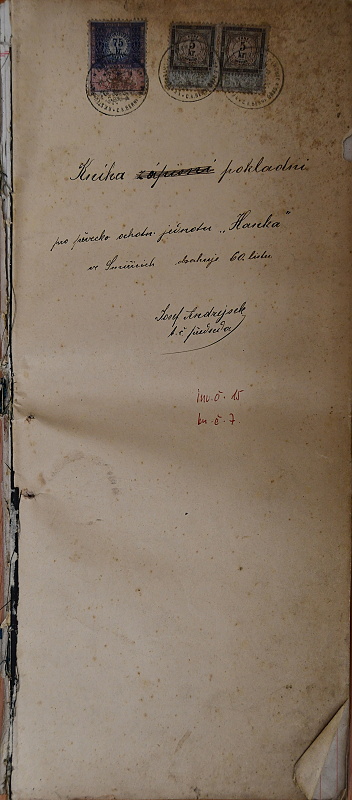 75
5
kr.
5
kr.
Kniha zápisní pokladní
pro pěvecko ochotn. jednotu „Hanka"
ve Smiřicích obsahuje 60. listů
Josef Andrejsek
t. č. předseda
inv. č. 15
kn. č. 7.